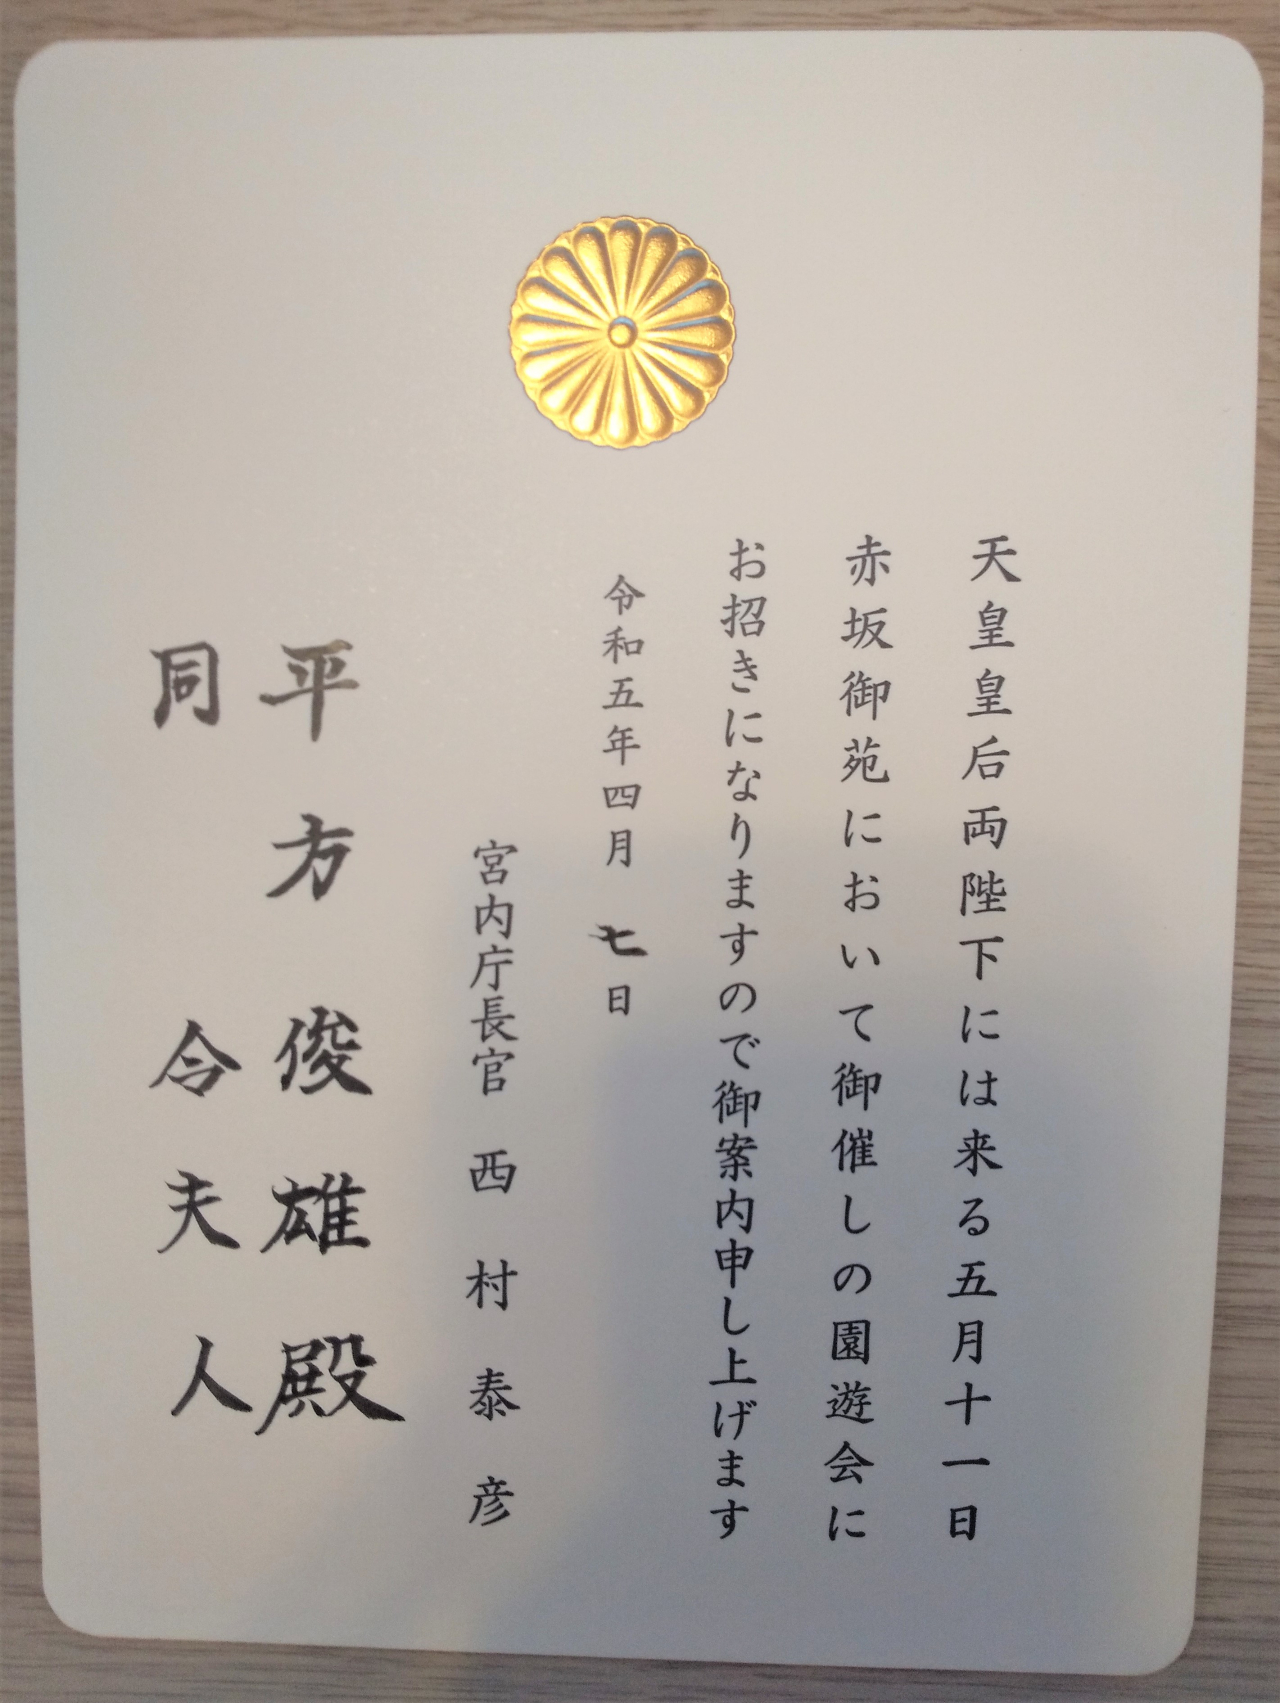 天皇皇后両陛下には来る五月十一日
赤坂御苑において御催しの園遊会に
お招きになりますので御案内申し上げます
令和五年四月七日
宮内庁長官 西村泰彦
平方俊雄殿
同令夫人